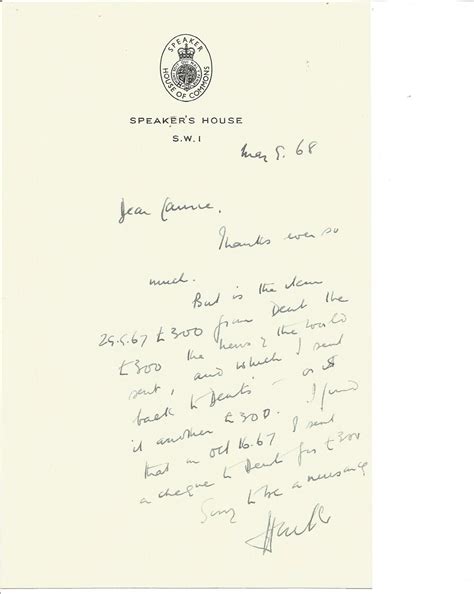 SPEAKER
HOUSE OF COMMONS
SPEAKER'S HOUSE
S.W.1
May 9. 68
Dear Laurie,
Thanks ever so
much.
But is the item
29.9.67 £300 from Dent the
£300 the News & the World
sent, and which I sent
back to Dents – or is
it another £300. I find
that on Oct 16.67 I sent
a cheque to Dent for £300
Sorry to be a nuisance